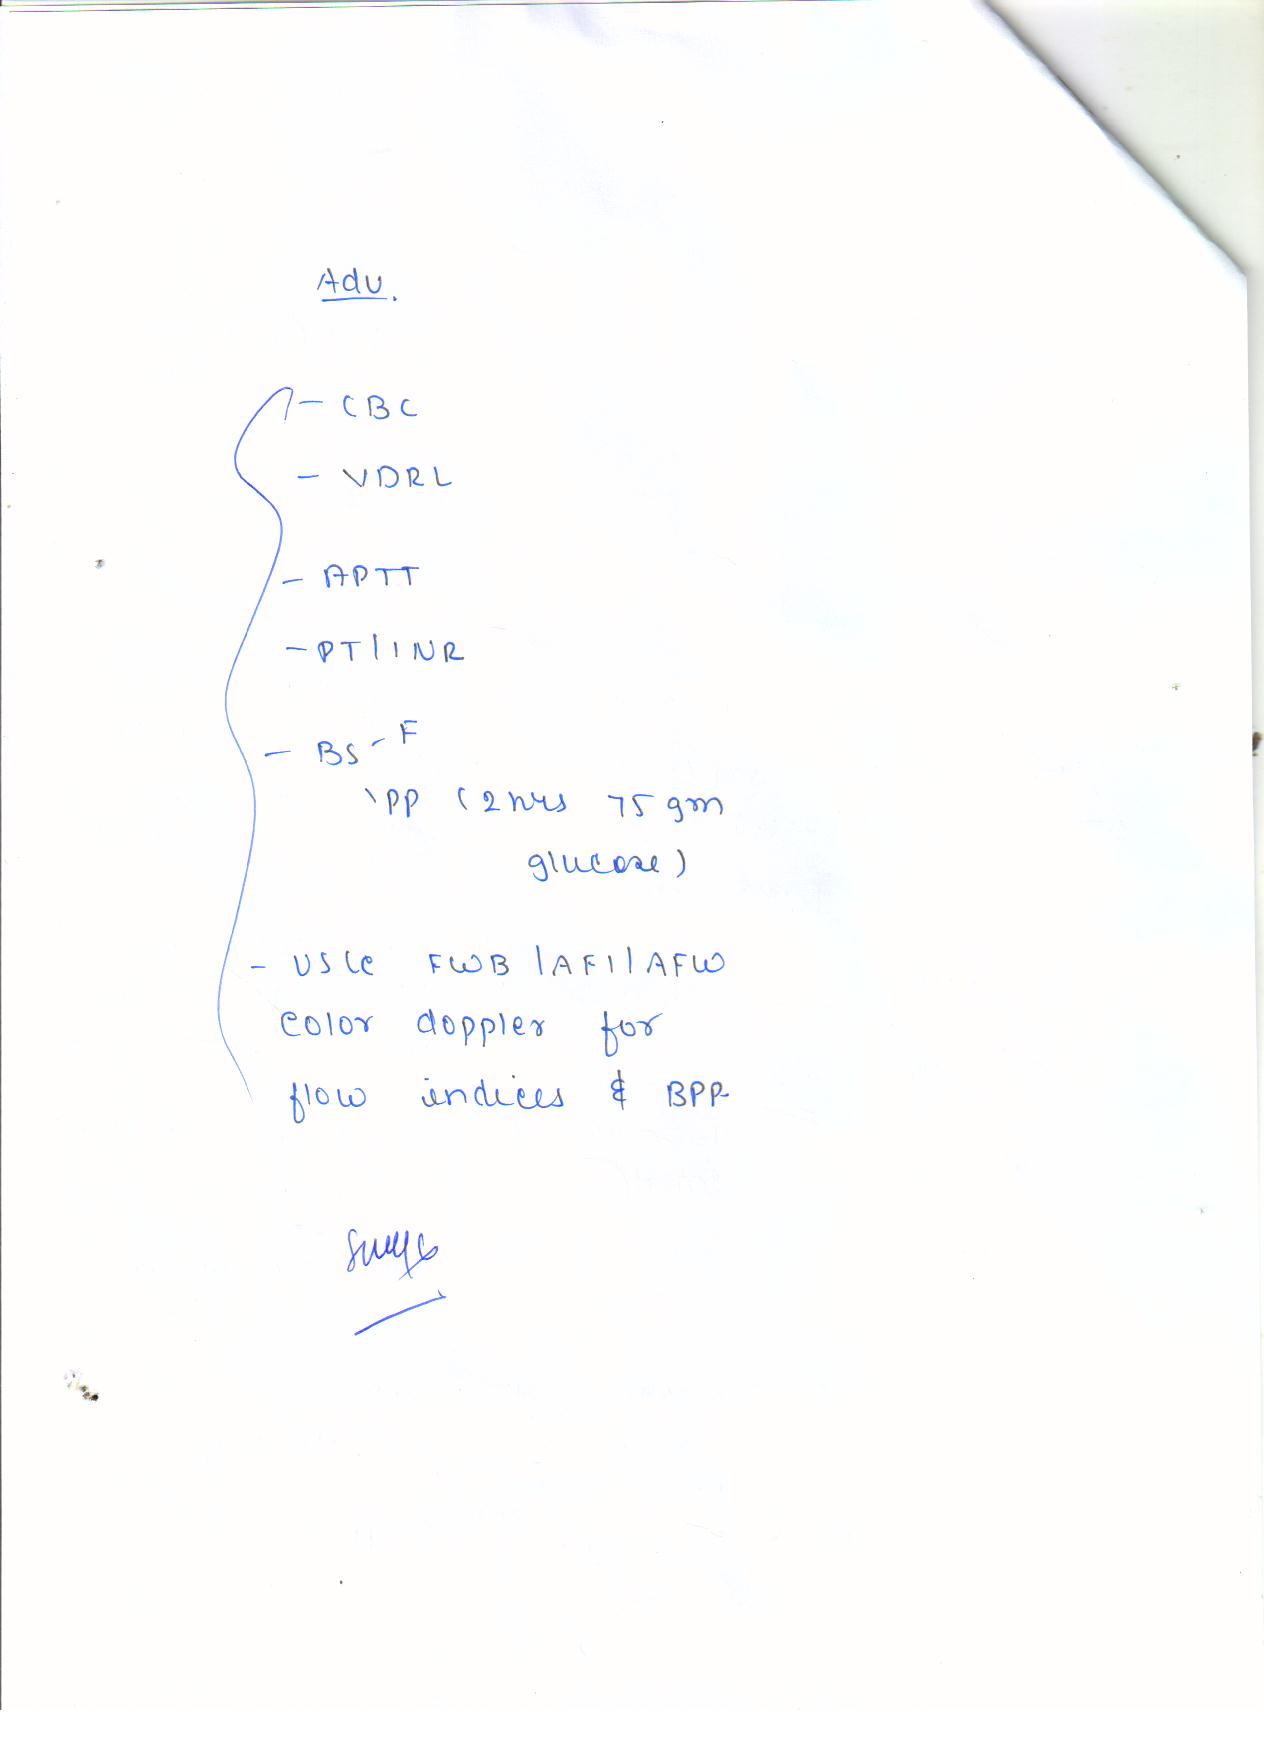 Adv.
- CBC
- VDRL
- APTT
- PT/INR
- BS - F
\PP (2 hrs 75 gm
glucose)
- FWB/AFI/AFW
color doppler for
flow indices & BPP